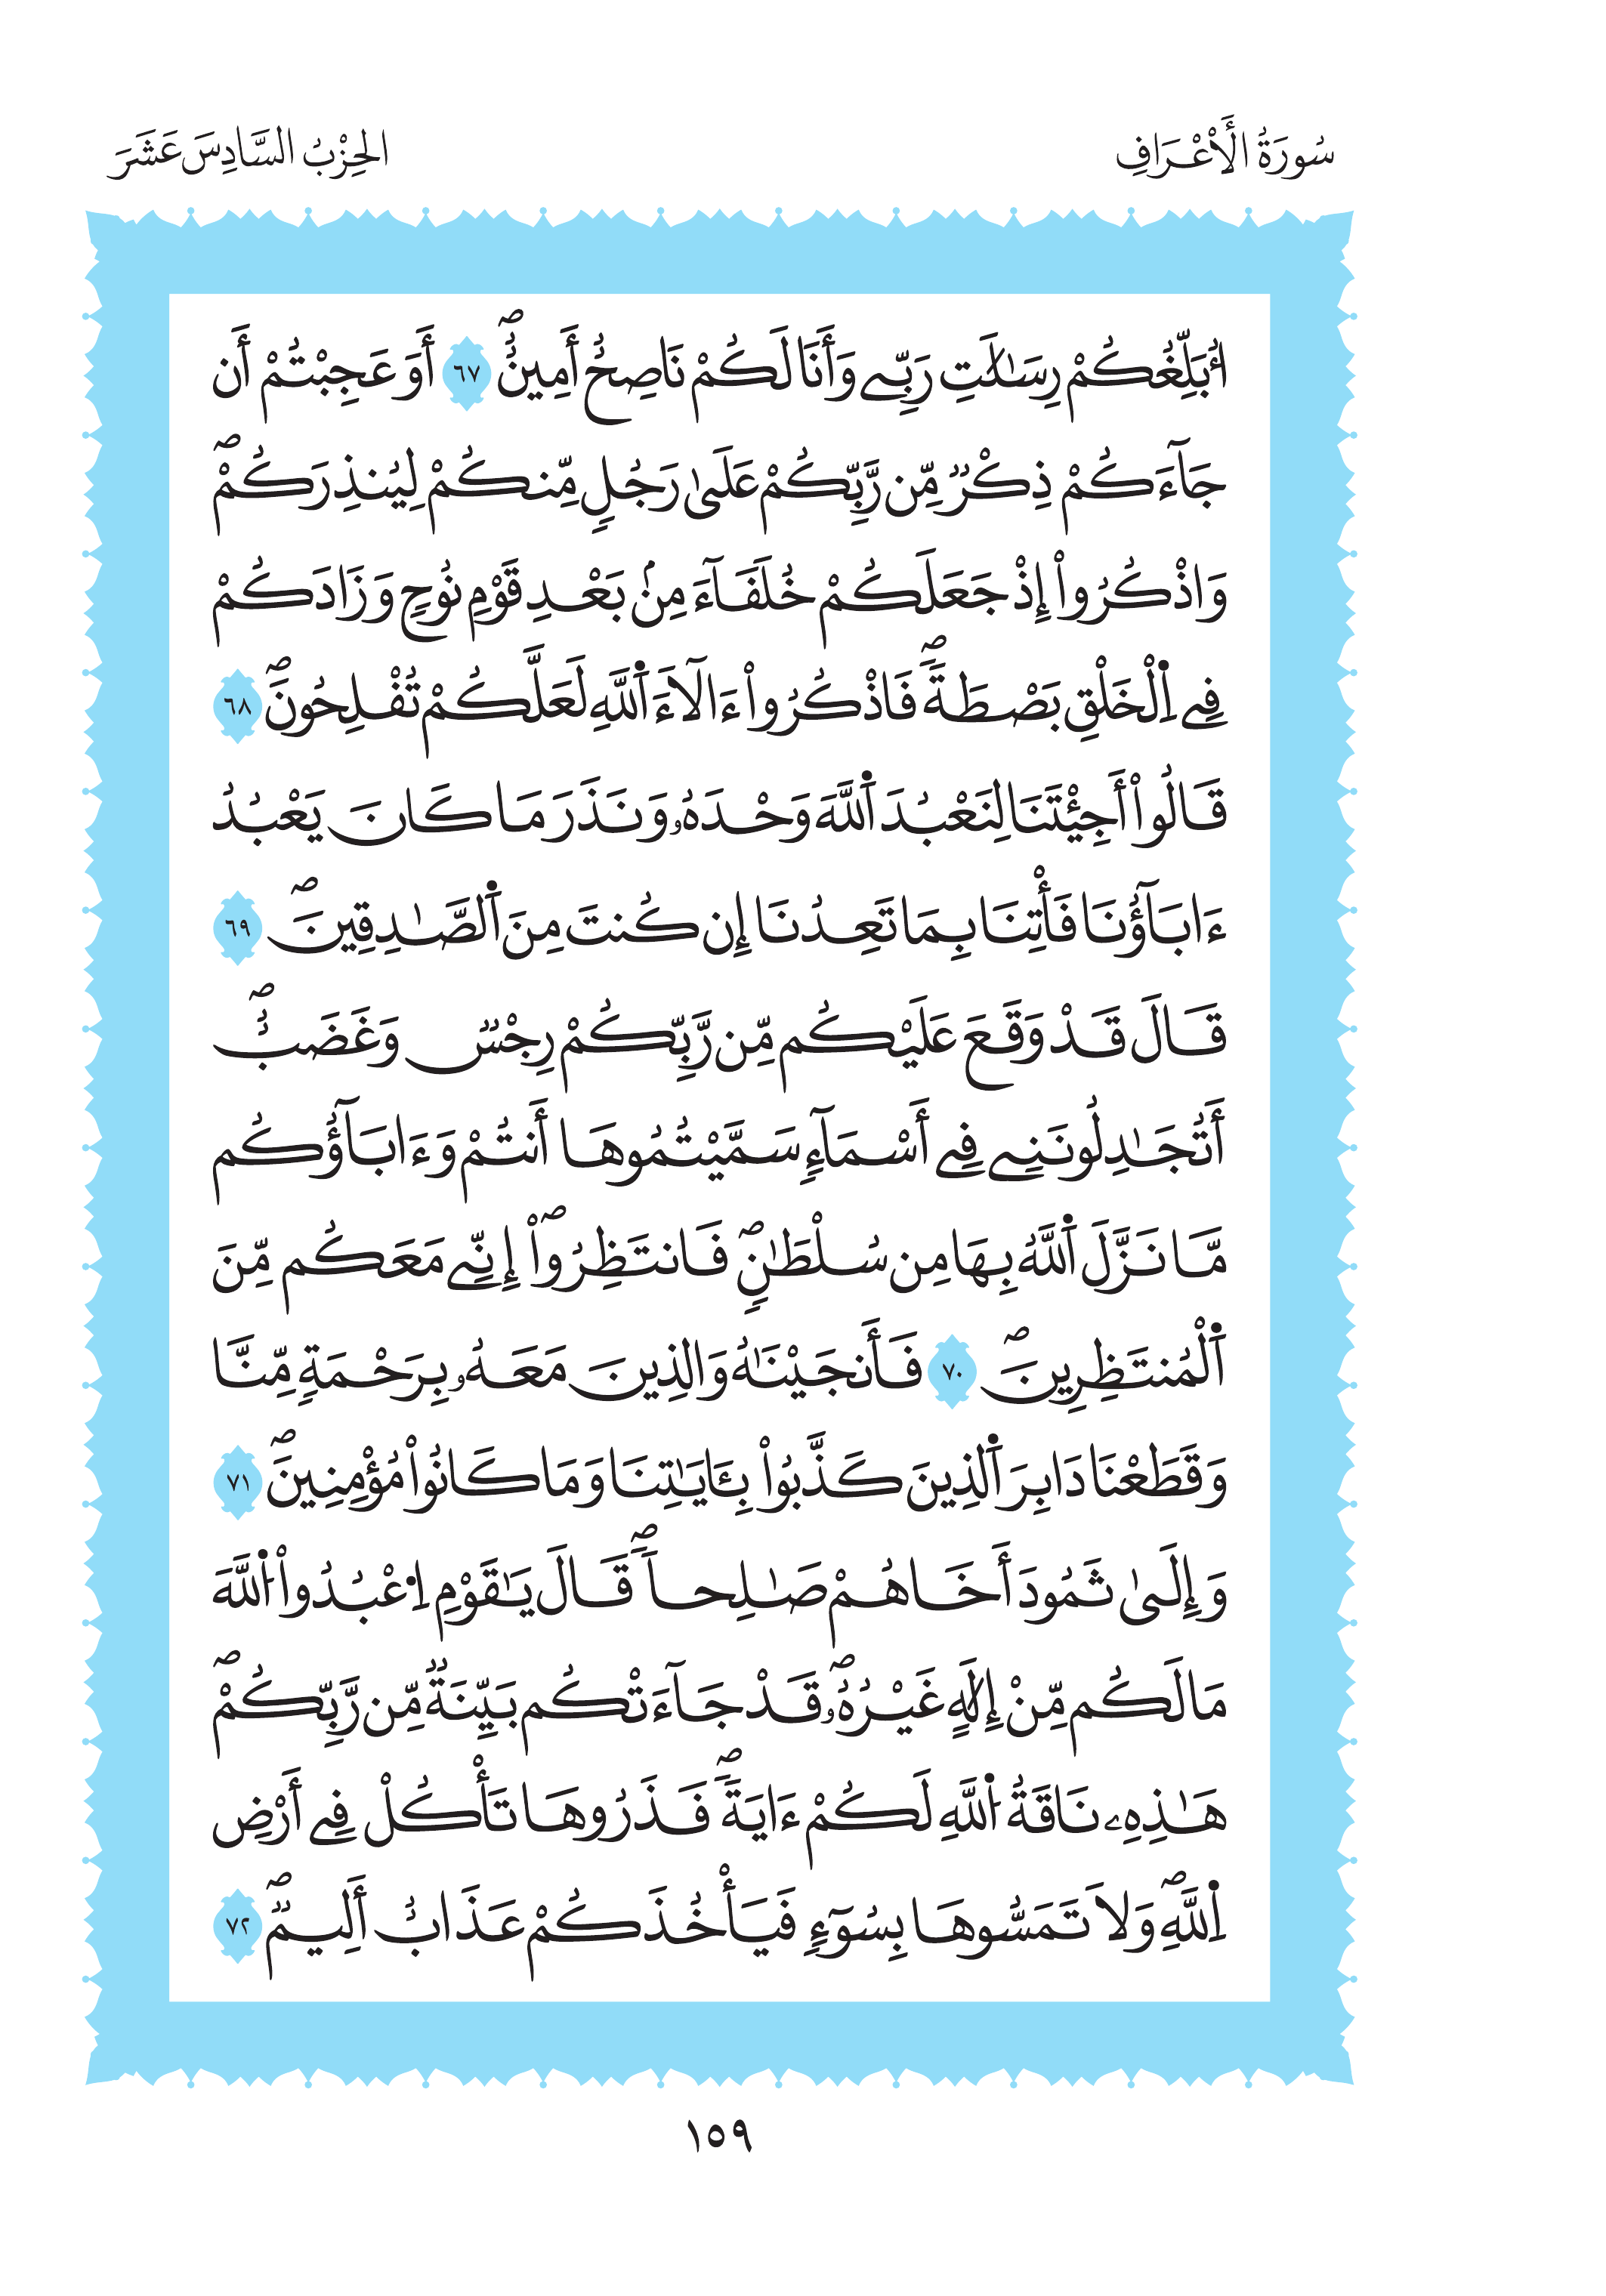 سُورَةُ الْأَعْرَافِ
الحِزْبُ السَّادِسَ عَشَرَ
اُبَلِّغُكُمْ رِسَٰلَٰتِ رَبِّے وَأَنَا لَكُمْ نَاصِحٌ أَمِينٌۖ ٦٧ أَوَعَجِبْتُمْ أَن
جَآءَكُمْ ذِكْرٞ مِّن رَّبِّكُمْ عَلَىٰ رَجُلٖ مِّنكُمْ لِيُنذِرَكُمْۖ
وَاذْكُرُواْ إِذْ جَعَلَكُمْ خُلَفَآءَ مِنۢ بَعْدِ قَوْمِ نُوحٖ وَزَادَكُمْ
فِے اِ۬لْخَلْقِ بَصْۜطَةٗۖ فَاذْكُرُواْ ءَالَآءَ اَ۬للَّهِ لَعَلَّكُمْ تُفْلِحُونَۖ ٦٨
قَالُواْ أَجِئْتَنَا لِنَعْبُدَ اَ۬للَّهَ وَحْدَهُۥ وَنَذَرَ مَا كَانَ يَعْبُدُ
ءَابَآؤُنَا فَأْتِنَا بِمَا تَعِدُنَا إِن كُنتَ مِنَ اَ۬لصَّٰدِقِينَۖ ٦٩
قَالَ قَدْ وَقَعَ عَلَيْكُم مِّن رَّبِّكُمْ رِجْسٞ وَغَضَبٌۖ
أَتُجَٰدِلُونَنِے فِے أَسْمَآءٖ سَمَّيْتُمُوهَا أَنتُمْ وَءَابَآؤُكُم
مَّا نَزَّلَ اَ۬للَّهُ بِهَا مِن سُلْطَٰنٖۖ فَانتَظِرُوٓاْۖ إِنِّے مَعَكُم مِّنَ
اَ۬لْمُنتَظِرِينَۖ ٧٠ فَأَنجَيْنَٰهُ وَالذِينَ مَعَهُۥ بِرَحْمَةٖ مِّنَّا
وَقَطَعْنَا دَابِرَ اَ۬لذِينَ كَذَّبُواْ بِـَٔايَٰتِنَا وَمَا كَانُواْ مُؤْمِنِينَۖ ٧١
وَإِلَىٰ ثَمُودَ أَخَاهُمْ صَٰلِحاٗۖ قَالَ يَٰقَوْمِ اِ۟عْبُدُواْ اُ۬للَّهَ
مَا لَكُم مِّنْ إِلَٰهٍ غَيْرُهُۥۖ قَدْ جَآءَتْكُم بَيِّنَةٞ مِّن رَّبِّكُمْۖ
هَٰذِهِۦ نَاقَةُ اُ۬للَّهِ لَكُمْ ءَايَةٗۖ فَذَرُوهَا تَأْكُلْ فِے أَرْضِ
اِ۬للَّهِۖ وَلَا تَمَسُّوهَا بِسُوٓءٖ فَيَأْخُذَكُمْ عَذَابٌ أَلِيمٞۖ ٧٢
١٥٩